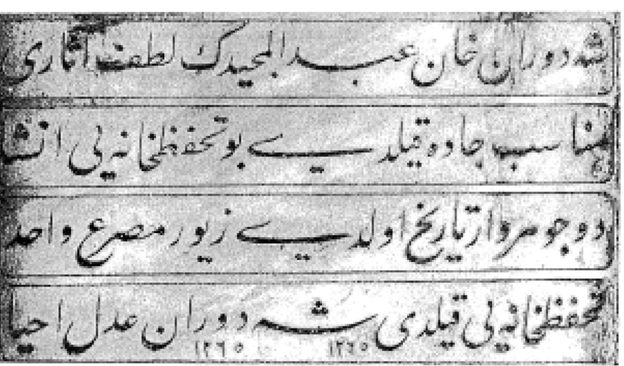 شه دوران خان عبدالمجیدك لطف آثاری
مناسب جاده قیلدی بو تحفظخانه‌یی انشا
دو جوهروار تاریخ اولدی زیور مصرع واحد
تحفظخانه‌یی قیلدی شه دوران عدل احیا
١٢٦٥ ١٢٦٥